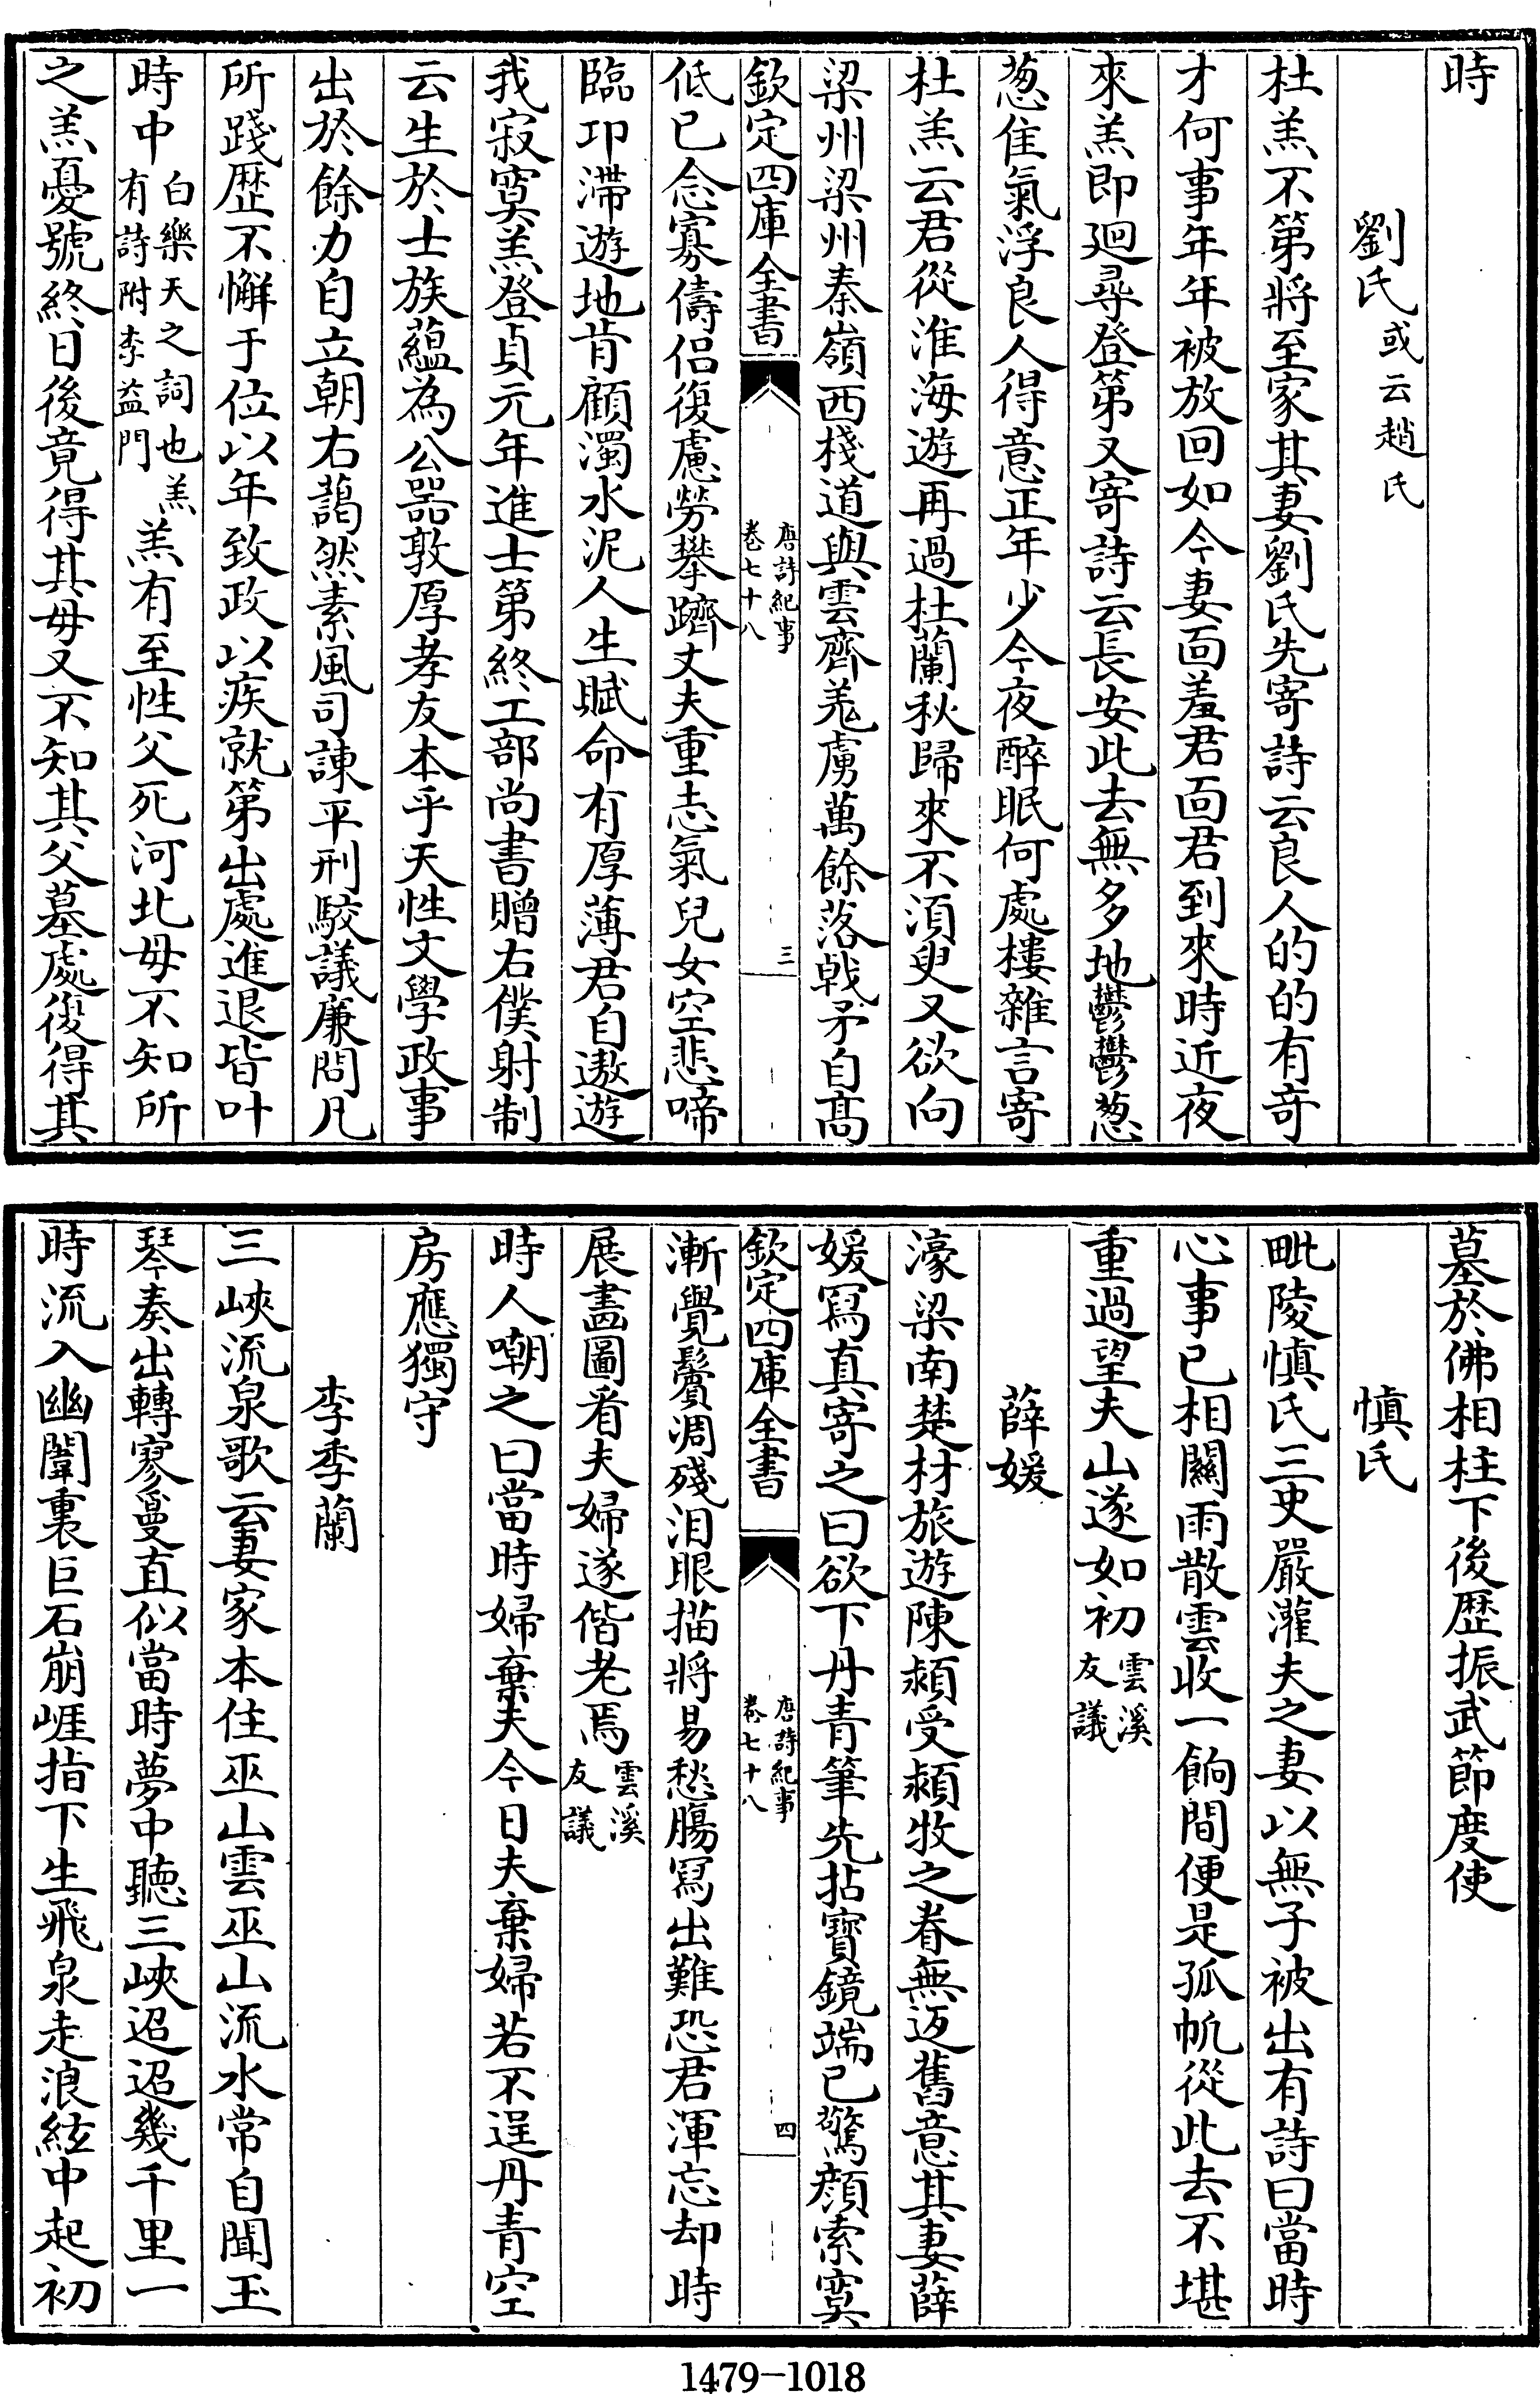 時
劉氏或云趙氏
杜羔不第將至家其妻劉氏先寄詩云良人的的有竒
才何事年年被放回如今妻面羞君面君到來時近夜
來羔即廻尋登第又寄詩云長安此去無多地鬱鬱葱
葱隹氣浮良人得意正年少今夜醉眠何處樓雜言寄
杜羔云君從淮海遊再過杜蘭秋歸來不湏臾又欲向
梁州梁州秦嶺西棧道與雲齊羗虜萬餘落戟矛自髙
欽定四庫全書
唐詩紀事
卷七十八
三
低已念寡儔侣復慮勞攀躋丈夫重志氣兒女空悲啼
臨卭滯遊地肯顧濁水泥人生賦命有厚薄君自遨遊
我寂寞羔登貞元年進士第終工部尚書贈右僕射制
云生於士族藴為公器敦厚孝友本乎天性文學政事
出於餘力自立朝右藹然素風司諫平刑駮議廉問凡
所踐歴不懈于位以年致政以疾就第出處進退皆叶
時中白樂天之詞也羔有詩附李益門羔有至性父死河北母不知所
之羔憂號終日後竟得其母又不知其父墓處復得其
墓於佛相柱下後歴振武節度使
慎氏
毗陵慎氏三史嚴灌夫之妻以無子被出有詩曰當時
心事已相關雨散雲收一餉間便是孤帆從此去不堪
重過望夫山遂如初雲溪友議
薛媛
濠梁南楚材旅遊陳潁受潁牧之眷無返舊意其妻薛
媛冩真寄之曰欲下丹青筆先拈寶鏡端已驚顔索寞
欽定四庫全書
唐詩紀事
卷七十八
四
漸覺鬢凋殘淚眼描將易愁膓冩出難恐君渾忘却時
展畫圖看夫婦遂偕老焉雲溪友議
時人嘲之曰當時婦棄夫今日夫棄婦若不逞丹青空
房應獨守
李季蘭
三峽流泉歌云妻家本住巫山雲巫山流水常自聞玉
琴奏出轉寥敻直似當時夢中聽三峽迢迢幾千里一
時流入幽閨裏巨石崩崖指下生飛泉走浪絃中起初
1479-1018